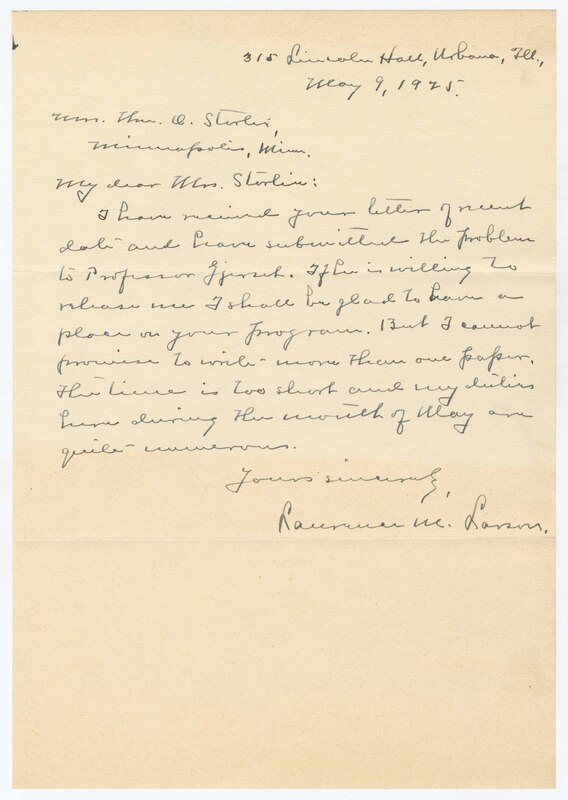 315 Lincoln Hall, Urbana, Ill.,
May 9, 1925.
Mrs. Theo. O. Storlie,
Minneapolis, Minn.
My dear Mrs. Storlie:
I have received your letter of recent
date and have submitted the problem
to Professor Gjerset. If he is willing to
release me I shall be glad to have a
place on your program. But I cannot
promise to write more than one paper.
The time is too short and my duties
here during the month of May are
quite numerous.
Yours sincerely,
Laurence M. Larson.